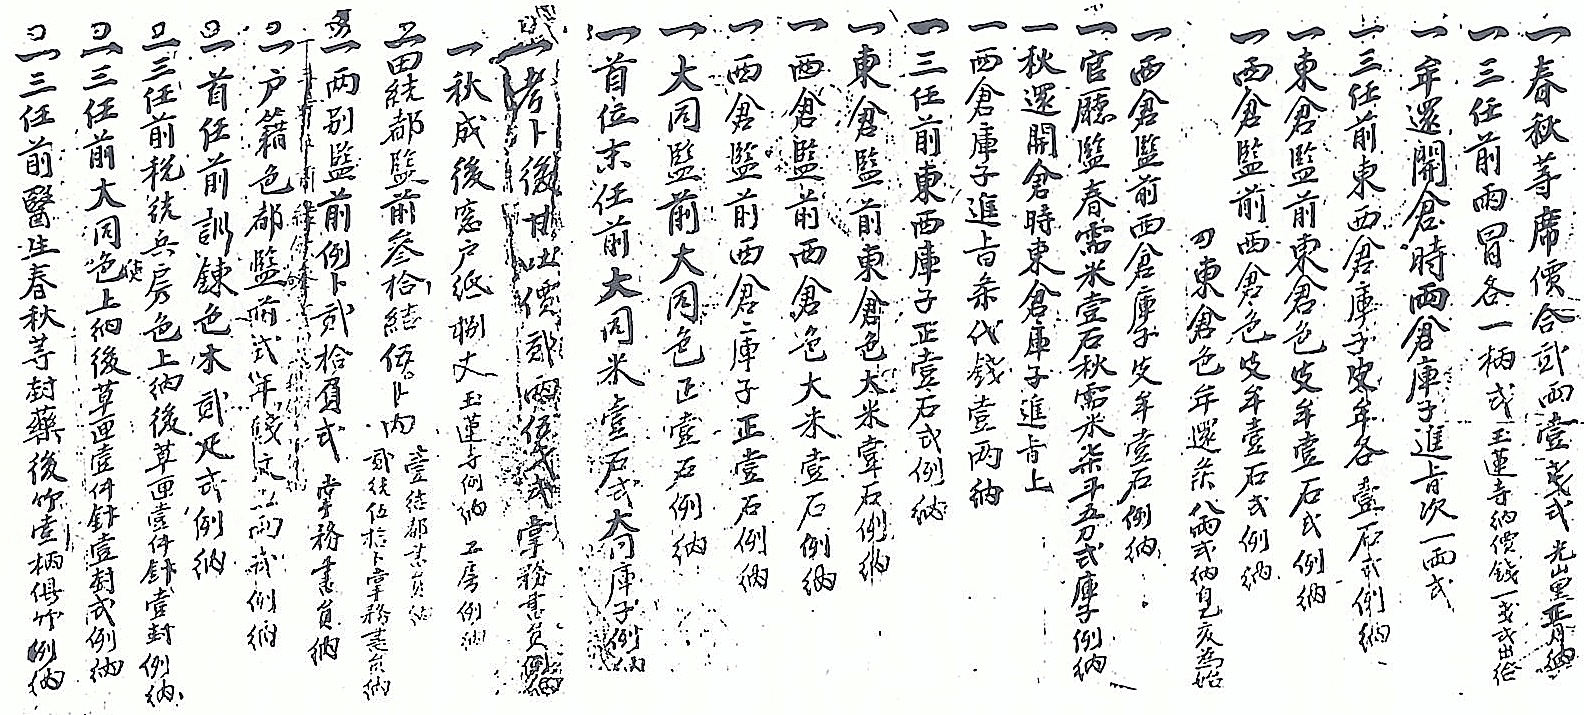 一春秋等席價合貳兩壹戔式 光山里正月納
一三任前雨冒各一柄式 玉蓮寺納價錢一戔式出給
一牟還開倉時兩倉庫子進上次一兩式
一三任前東西倉庫子皮牟各壹石式例納
一東倉監前東倉色皮牟壹石式例納
一西倉監前西倉色皮牟壹石式例納
東倉色牟還 八兩式納自己亥為始
一西倉監前西倉庫子皮牟壹石例納
一官廳監春需米壹石秋需米柒斗五刀式庫子例納
一秋還開倉時東倉庫子進上
一西倉庫子進上条代錢壹兩納
一三任前東西庫子正壹石式例納
一東倉監前東倉色大米壹石例納
一西倉監前西倉色大米壹石例納
一西倉監前西倉庫子正壹石例納
一大同監前大同色正壹石例納
一首位末任前大同米壹石式大同庫子例納
一考卜後甘 價貳兩伍戔式掌務書員例納
一秋成後窓戶紙捌丈 玉蓮寺例納 工房例納
一田結都監前參拾結伍卜內 壹結都書員納 貳結伍拾卜掌務書員納
一兩別監前例卜貳拾負式 掌務書員納
一戶籍色都監前式年 兩式例納
一首任前訓鍊色木貳疋式例納
一三任前稅統兵房色上納後草匣壹件 壹封例納
一三任前大同色上納後草匣壹件 壹封式例納
一三任前醫生春秋等封藥後竹壹柄 例納